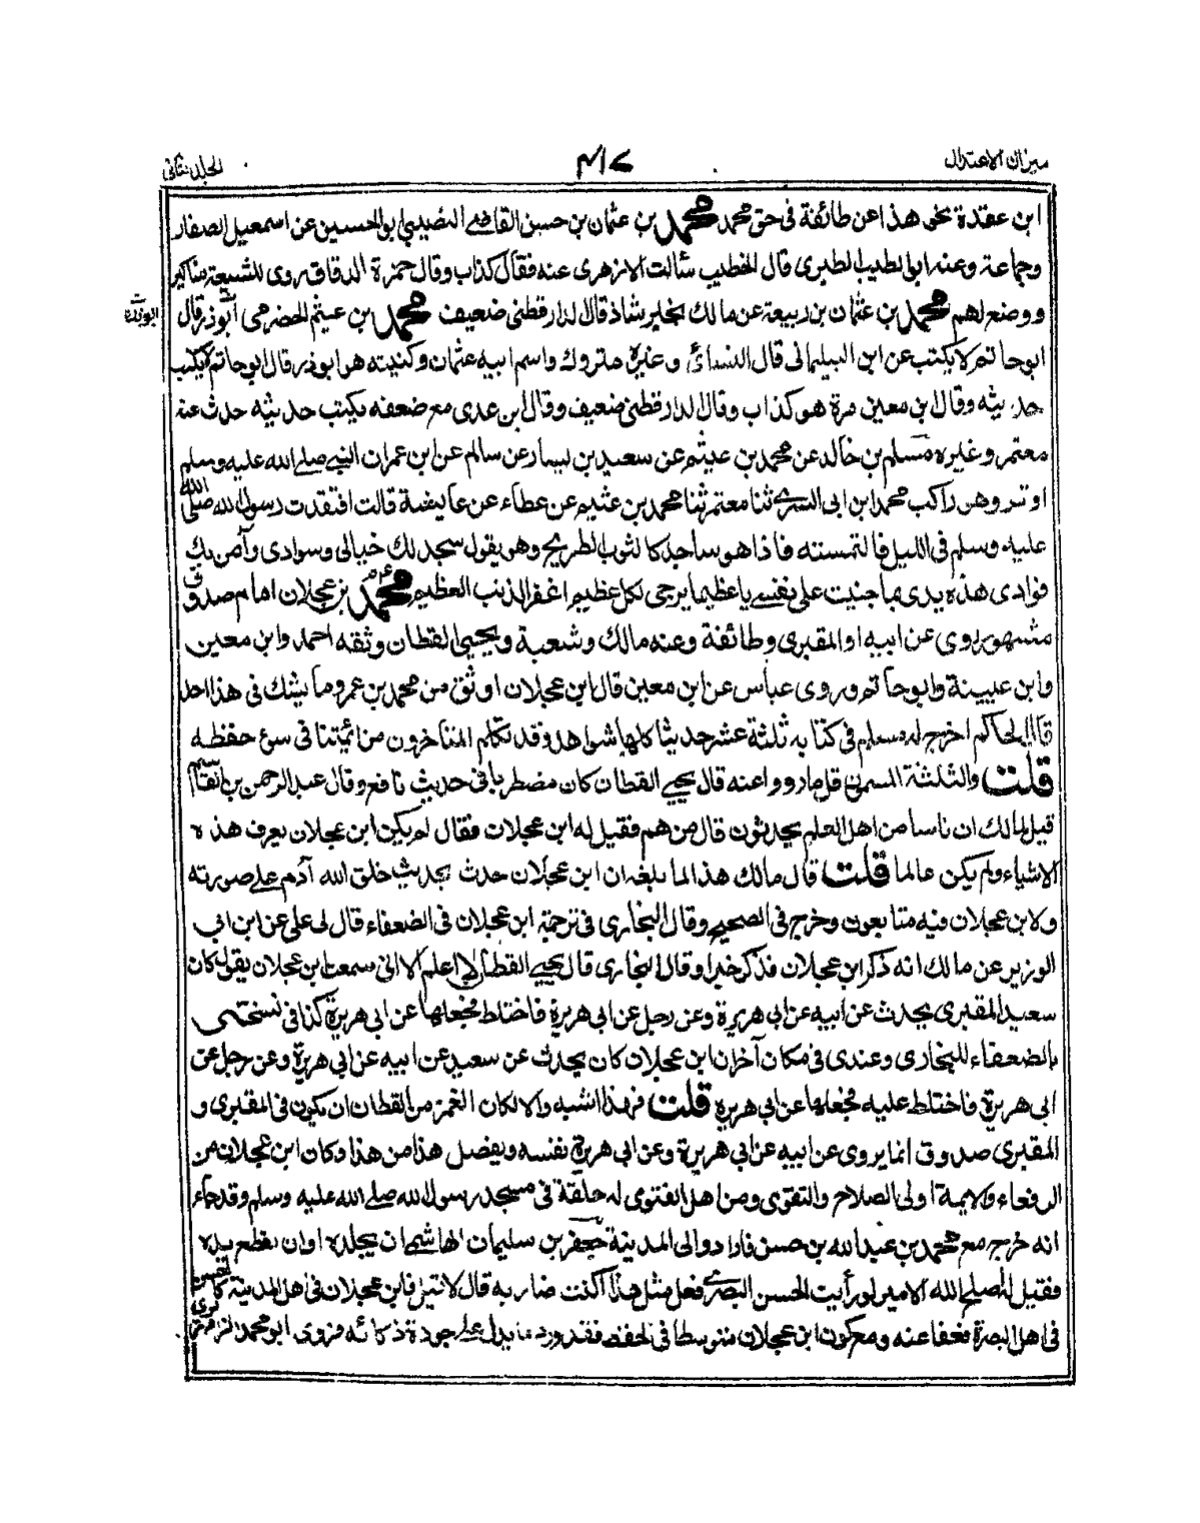 ميزان الاعتدال
٤١٧
الجلد الثانى
ابن عقدة نحو هذا عن طائفة فى حق محمد محمد بن عثمان بن حسن القاضى النصيبى ابو الحسين عن اسمعيل الصفار
وجماعة وعنه ابو الطيب الطبرى قال الخطيب سألت الازهرى عنه فقال كذاب وقال حمزة الدقاق روى للشيعة مناكير
ووضع لهم محمد بن عثمان بن ربيعة عن مالك بخبر شاذ قال الدارقطنى ضعيف محمد بن عثيم الحضرمى ابو ذر قال
ابو حاتم لا يكتب عن ابن البيلمانى قال النسائى وغيره متروك واسم ابيه عثمان وكنيته هو ابو ذر قال ابو حاتم لا يكتب
حديثه وقال ابن معين مرة هو كذاب وقال الدارقطنى ضعيف وقال ابن عدى مع ضعفه يكتب حديثه حدث عنه
معتمر وغيره مسلم بن خالد عن محمد بن عيثم عن سعيد بن يسار عن سالم عن ابن عمران النبى صلى الله عليه وسلم
اوتر وهو راكب محمد ابن ابى السرى ثنا معتمر ثنا محمد بن عثيم عن عطاء عن عايشة قالت افتقدت رسول الله صلى الله
عليه وسلم فى الليل فالتمسته فاذا هو ساجد كالثوب الطريح وهو يقول سجد لك خيالى وسوادى وآمن بك
فوادى هذه يدى بما جنيت على نفسى يا عظيما يرجى لكل عظيم اغفر الذنب العظيم محمد بن عجلان امام صدوق
مشهور روى عن ابيه او المقبرى وطائفة وعنه مالك وشعبة ويحيى القطان وثقه احمد وابن معين
وابن عيينة وابو حاتم وروى عباس عن ابن معين قال ابن عجلان اوثق من محمد بن عمرو ما يشك فى هذا احد
قال الحاكم اخرج له مسلم فى كتابه ثلثة عشر حديثا كلها شواهد وقد تكلم المتاخرون من ائمتنا فى سوء حفظه
قلت والثلثة المسمون قل ما رووا عنه قال يحيى القطان كان مضطربا فى حديث نافع وقال عبد الرحمن بن القاسم
قيل لمالك ان ناسا من اهل العلم يحدثون قال من هم فقيل له ابن عجلان فقال لم يكن ابن عجلان يعرف هذه
الاشياء ولم يكن عالما قلت قال مالك هذا لما بلغه ان ابن عجلان حدث بحديث خلق الله آدم على صورته
ولابن عجلان فيه متابعون وخرج فى الصحيح وقال البخارى فى ترجمة ابن عجلان فى الضعفاء قال لى على عن ابن ابى
الوزير عن مالك انه ذكر ابن عجلان فذكر خيرا وقال البخارى قال يحيى القطان لا اعلم الا انى سمعت ابن عجلان يقول كان
سعيد المقبرى يحدث عن ابيه عن ابى هريرة وعن رجل عن ابى هريرة فاختلط فجعلها عن ابى هريرة كذا فى نسختى
بالضعفاء للبخارى وعندى فى مكان آخر ان ابن عجلان كان يحدث عن سعيد عن ابيه عن ابى هريرة وعن رجل عن
ابى هريرة فاختلط عليه فجعلها عن ابى هريرة قلت فهذا اشبه والا لكان الغمز من القطان ان يكون فى المقبرى و
المقبرى صدوق انما يروى عن ابيه عن ابى هريرة وعن ابى هريرة نفسه ويفصل هذا من هذا وكان ابن عجلان من
الرفعاء والايمة اولى الصلاح والتقوى ومن اهل الفتوى له حلقة فى مسجد رسول الله صلى الله عليه وسلم وقد جاء
انه خرج مع محمد بن عبد الله بن حسن فاراد والى المدينة جعفر بن سليمان الهاشمى ان يجلده او ان يقطع يده
فقيل له اصلح الله الامير لو رأيت الحسن البصرى فعل مثل هذا اكنت ضاربه قال لا قيل فابن عجلان فى اهل المدينة كالحسن
فى اهل البصرة فعفا عنه ومع كون ابن عجلان متوسطا فى الحفظ فقد ورد ما يدل على جودة ذكائه فروى ابو محمد الرامهرمزى